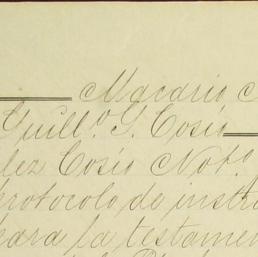 Macario
Guill.o G. Cosío
lez Cosío Not.o
protocolo de instr
para la testamen